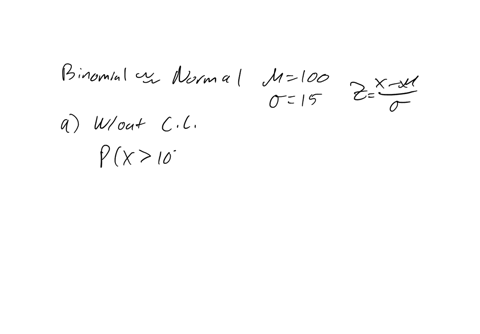 Binomial ≈ Normal μ=100 Z=(x-μ)/σ
σ=15
a) W/out C.C.
P(X>10